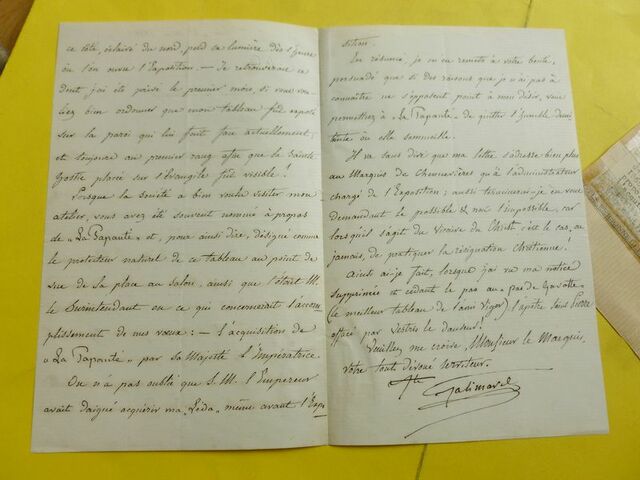 ce côté, éclairé du nord, perd sa lumière dès l'heure
où l'on ouvre l'Exposition. — Je retrouverai ce
dont j'ai été privé le premier mois, si vous vou-
liez bien ordonner que mon tableau fut exposé
sur la paroi qui lui fait face actuellement,
et toujours au premier rang afin que la Sainte
Hostie placée sur l'Evangile fut visible!
Lorsque la Société a bien voulu visiter mon
atelier, vous avez été souvent nommé à propos
de « La Papauté » et, pour ainsi dire, désigné comme
le protecteur naturel de ce tableau au point de
vue de sa place au Salon, ainsi que l'était M.
le Surintendant en ce qui concernerait l'accom-
plissement de nos vœux: — l'acquisition de
« La Papauté » par Sa Majesté l'Impératrice.
On n'a pas oublié que S. M. l'Empereur
avait daigné acquérir ma « Léda » même avant l'Expo
sition.
En résumé, je m'en remets à votre bonté,
persuadé que si des raisons que je n'ai pas à
connaître ne s'opposent point à mon désir, vous
permettrez à « La Papauté » de quitter l'humble
où elle sommeille.
Il va sans dire que ma lettre s'adresse bien plus
au Marquis de Chennevières qu'à l'administrateur
chargé de l'Exposition; aussi terminerai-je en vous
demandant le possible & non l'impossible, car
lorsqu'il s'agit du Vicaire du Christ c'est le cas, ou
jamais, de pratiquer la résignation Chrétienne!
Ainsi ai-je fait, lorsque j'ai vu ma notice
supprimée et cédant le pas au « pas de Gavotte »
(le meilleur tableau de l'ami Viger) l'apôtre Saint Pierre
effacé par Vestris le danseur!
Veuillez me croire, Monsieur le Marquis,
votre tout dévoué serviteur.
Galimard